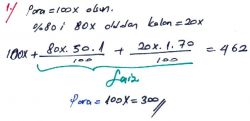 1) Para = 100x olsun.
%80 i 80x oldudan kalan = 20x
100x + 80x.50.1/100 + 20x.1.70/100 = 462
faiz
Para = 100x = 300//